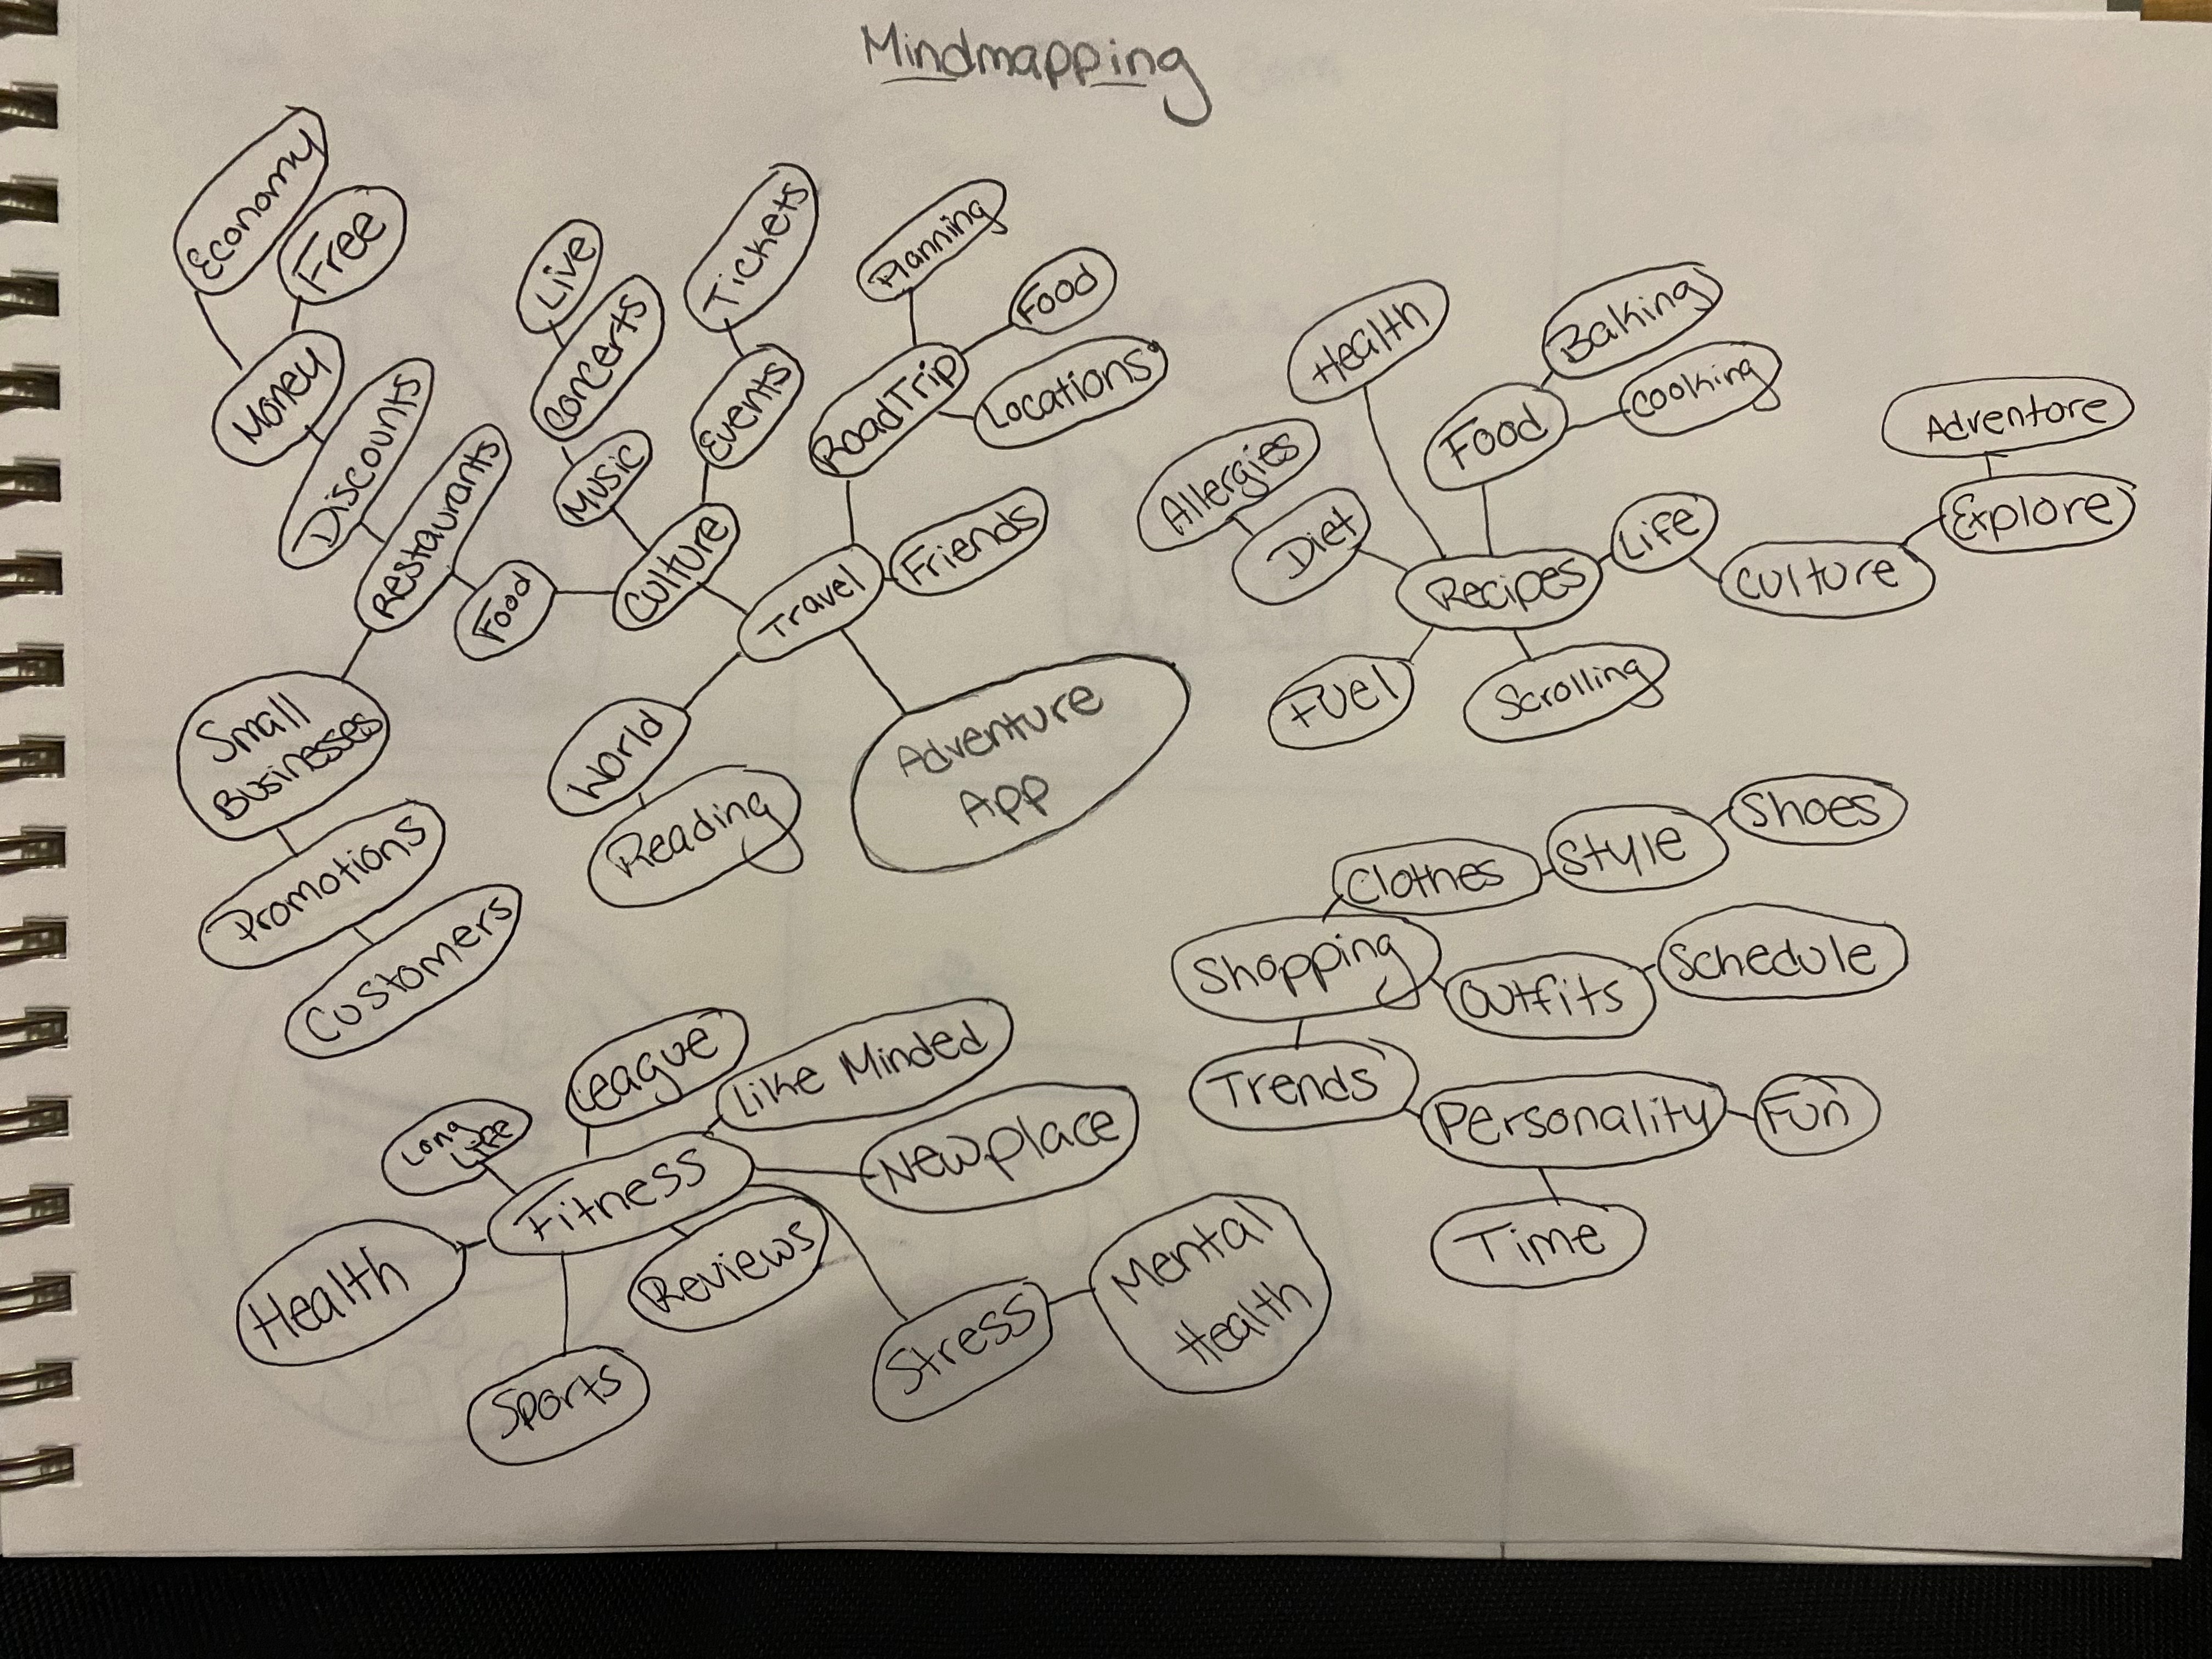 Mindmapping
Economy
Free
Money
Discounts
Restaurants
Food
Small
Businesses
Promotions
Customers
Live
Concerts
Music
Culture
Tickets
Events
Planning
Food
Locations
RoadTrip
Friends
Travel
World
Reading
Adventure
App
Health
Baking
Cooking
Food
Allergies
Diet
Recipes
Life
Culture
Explore
Adventore
Fuel
Scrolling
Clothes
Style
Shoes
Shopping
Outfits
Schedule
Trends
Personality
Fun
Time
League
Like Minded
Newplace
Long
Life
Fitness
Health
Reviews
Sports
Stress
Mental
Health